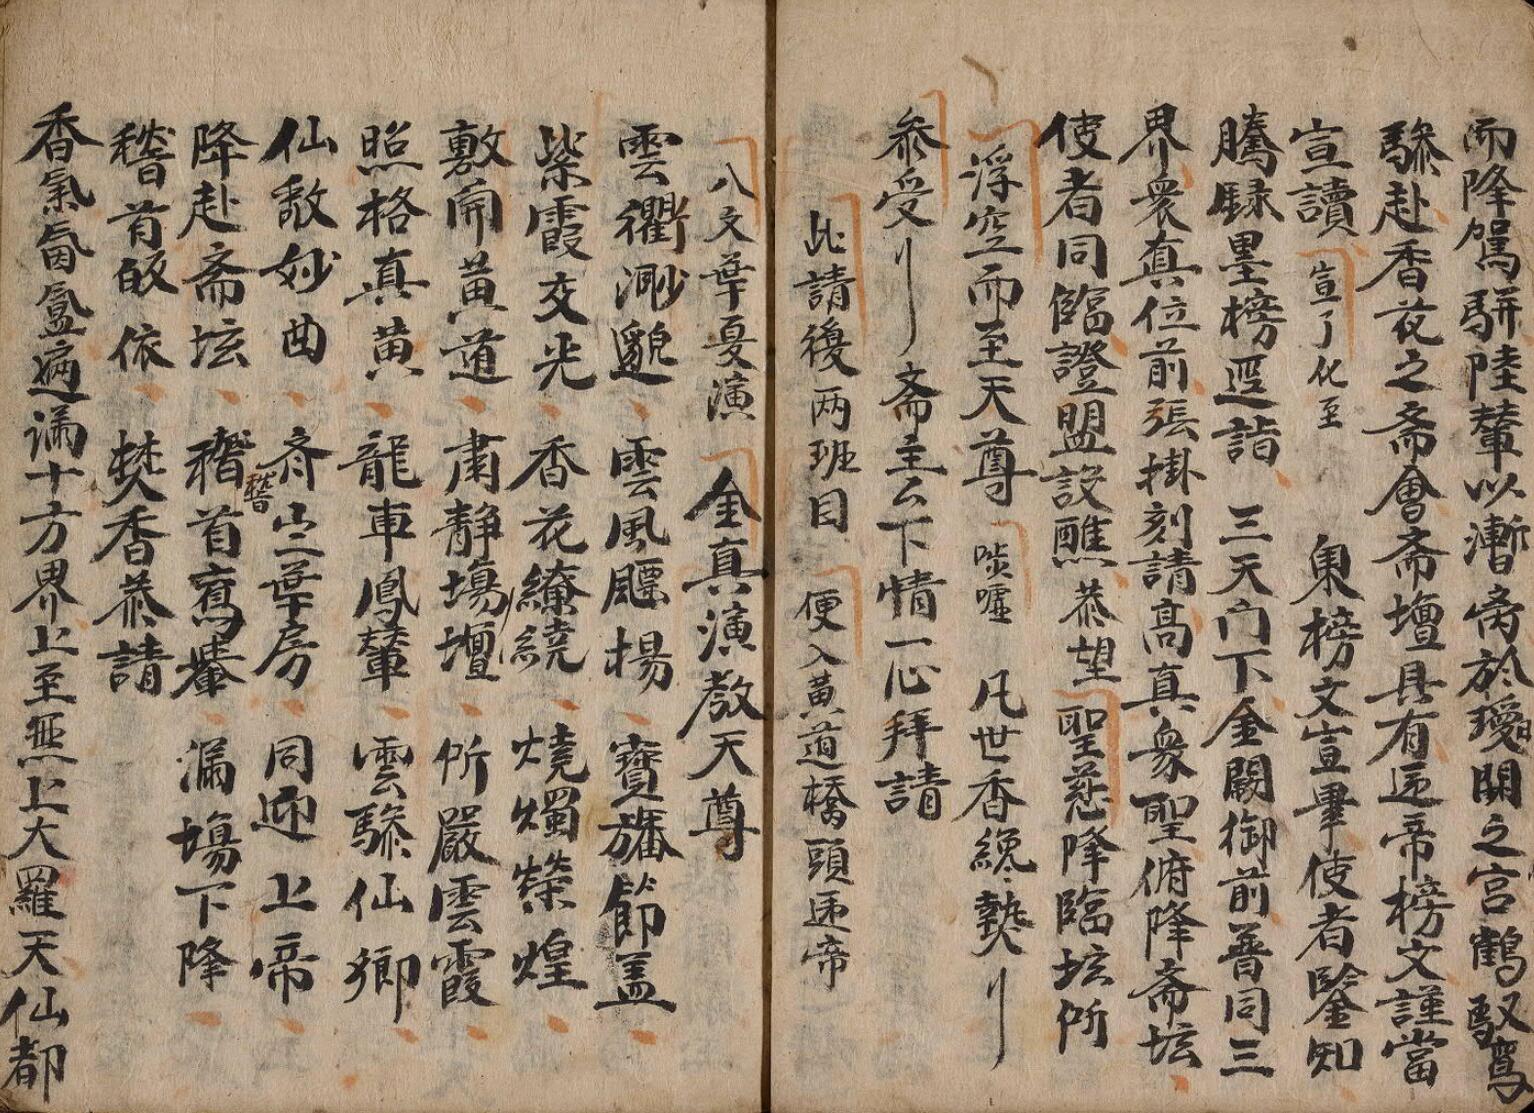 而降駕駢陸輦以漸离於璦闗之宫鶴馭鸞
驂赴香花之斋會斋壇具有迓帝榜文謹當
宣讀 宣了化至 東榜文宣畢使者鋻知
騰騄墨榜逕詣 三天门下金闕御前普同三
界衆真位前張掛刻請高真衆聖俯降斋坛
使者同臨證盟設醮 恭望 聖慈降臨坛所
浮空而至天尊 啖嘘 凡世香纔爇刂
叅受刂 斋主厶下情一心拜請
此請後两班目 便入黄道橋頭迓帝
八文葉戛演 金真演教天尊
雲衢渺邈 雲風飂楊 寳旛節盖
紫霞交光 香花繚繞 燒燭榮煌
敷開黄道 肅静場壇 所嚴雲霞
照格真黄 龍車鳳輦 雲驂仙卿
仙敖妙曲 斉亠二葉房 同迎上帝
降赴斋坛 稽首鸞輦 漏場下降
稽首皈依 焚香恭請
香氣氤氲遍漏十方界上至無上大羅天仙都